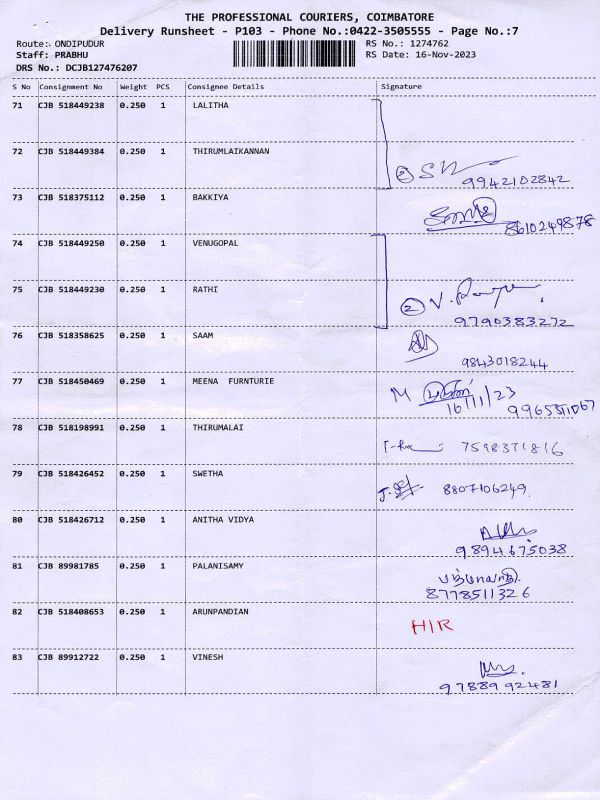 THE PROFESSIONAL COURIERS, COIMBATORE
Delivery Runsheet - P103 - Phone No.:0422-3505555 - Page No.:7
Route: ONDIPUDUR RS No.: 1274762
Staff: PRABHU RS Date: 16-Nov-2023
DRS No.: DCJB127476207
S No Consignment No Weight PCS Consignee Details Signature
71 CJB 518449238 0.250 1 LALITHA
72 CJB 518449384 0.250 1 THIRUMLAIKANNAN
② 9942102842
73 CJB 518375112 0.250 1 BAKKIYA
8610249878
74 CJB 518449250 0.250 1 VENUGOPAL
75 CJB 518449230 0.250 1 RATHI
② V.
9790383272
76 CJB 518358625 0.250 1 SAAM
9843018244
77 CJB 518450469 0.250 1 MEENA FURNTURIE
M
16/11/23
78 CJB 518198991 0.250 1 THIRUMALAI
7598371816
79 CJB 518426452 0.250 1 SWETHA
8807106249.
80 CJB 518426712 0.250 1 ANITHA VIDYA
9894675038
81 CJB 89981785 0.250 1 PALANISAMY
8778511326
82 CJB 518408653 0.250 1 ARUNPANDIAN
H/R
83 CJB 89912722 0.250 1 VINESH
9788992481